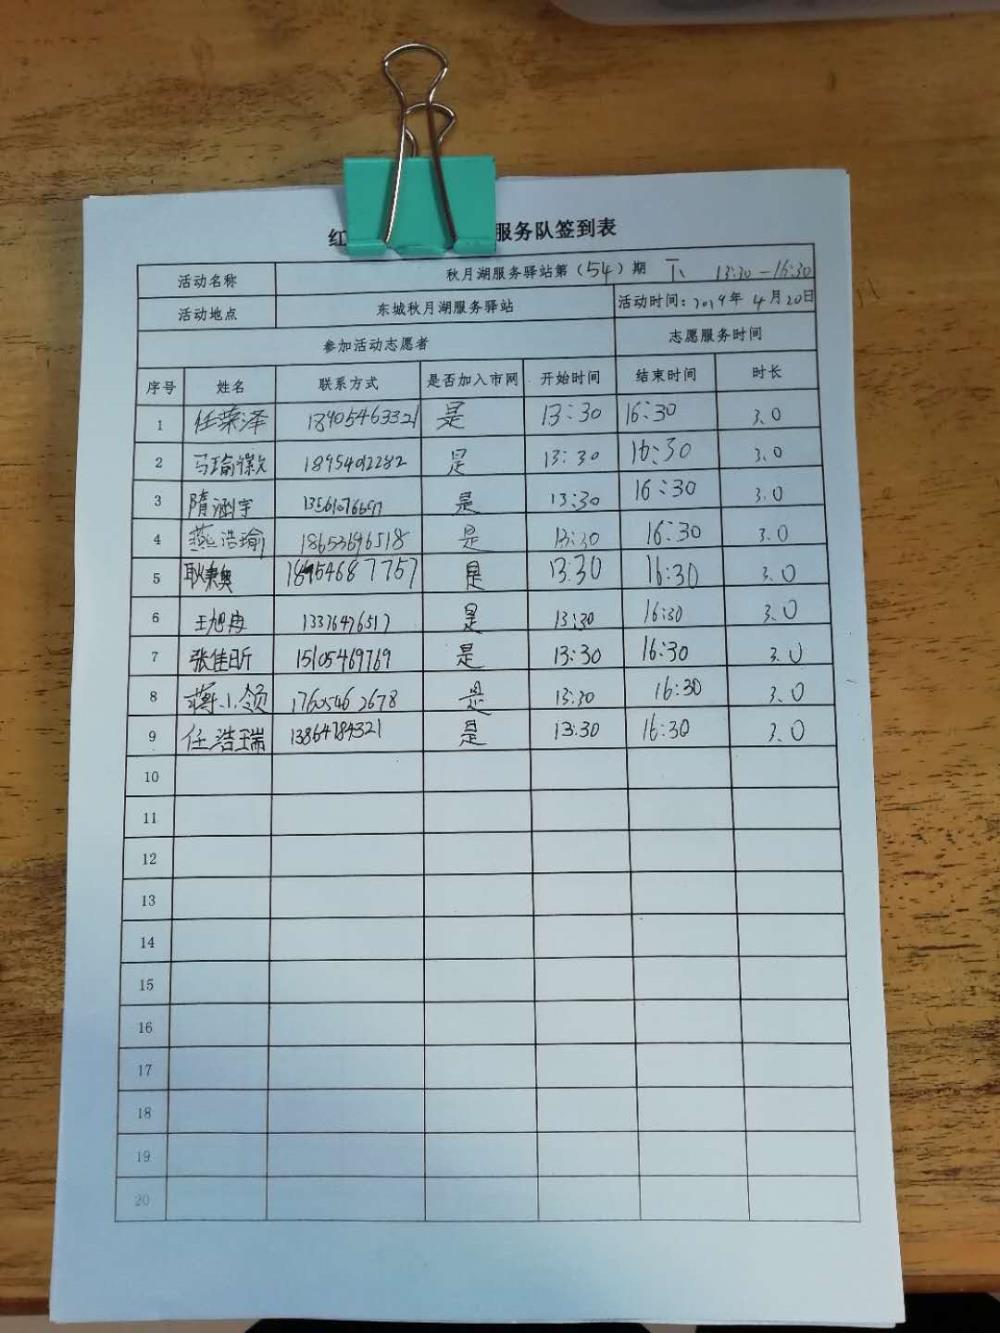 红
服务队签到表
活动名称 秋月湖服务驿站第（54）期 下 13:30-16:30
活动地点 东城秋月湖服务驿站 活动时间：2019年4月20日
参加活动志愿者 志愿服务时间
序号 姓名 联系方式 是否加入市网 开始时间 结束时间 时长
1 任荣泽 18905463321 是 13:30 16:30 3.0
2 马瑜徽 是 13:30 16:30 3.0
3 隋涵宇 是 13:30 16:30 3.0
4 燕浩瑜 18653696518 是 13:30 16:30 3.0
5 耿秉奥 18954687757 是 13:30 16:30 3.0
6 王旭冉 是 13:30 16:30 3.0
7 张佳昕 15105469769 是 13:30 16:30 3.0
8 蒋小领 17605462678 是 13:30 16:30 3.0
9 任浩瑞 13864784321 是 13:30 16:30 3.0
10
11
12
13
14
15
16
17
18
19
20